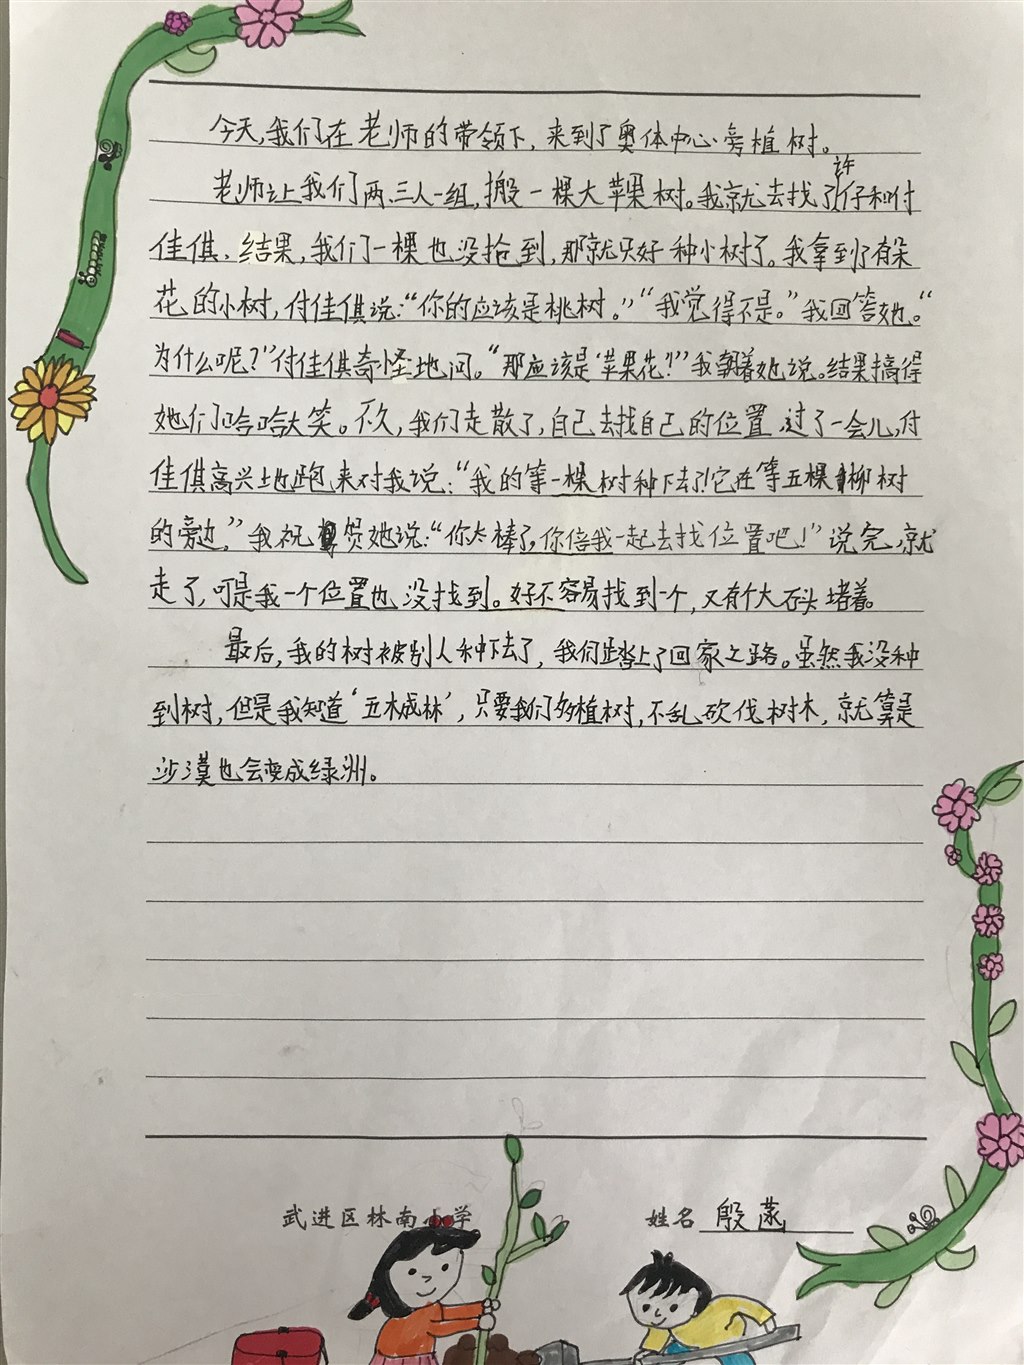 今天，我们在老师的带领下，来到了奥体中心旁植树。
老师让我们两、三人一组，搬一棵大苹果树。我就去找了许仔和付
佳倛、结果，我们一棵也没抢到，那就只好种小树了。我拿到了有朵
花的小树，付佳倛说：“你的应该是桃树。”“我觉得不是。”我回答她。“
为什么呢？”付佳倛奇怪地问。“那应该是‘苹果花’！”我朝着她说。结果搞得
她们哈哈大笑。不久，我们走散了，自己去找自己的位置，过了一会儿，付
佳倛高兴地跑来对我说：“我的第一棵树种下去了！它在第五棵柳树
的旁边，”我祝贺她说：“你太棒了，你倍我一起去找位置吧！”说完，就
走了，可是我一个位置也没找到。好不容易找到一个，又有个大石头堵着。
最后，我的树被别人种下去了，我们踏上了回家之路。虽然我没种
到树，但是我知道‘五木成林’，只要我们多植树，不乱砍伐树木，就算是
沙漠也会变成绿洲。
武进区林南小学
姓名 殷